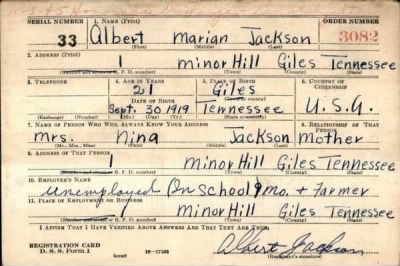 SERIAL NUMBER 1. NAME (Print) ORDER NUMBER
33 Albert Marian Jackson 3082
(First) (Middle) (Last)
2. ADDRESS (Print)
1 Minor Hill Giles Tennessee
3. TELEPHONE 4. AGE IN YEARS 5. PLACE OF BIRTH 6. COUNTRY OF CITIZENSHIP
21 Giles
DATE OF BIRTH
Sept. 30 1919 Tennessee U.S.A.
(Exchange) (Number) (Mo.) (Day) (Yr.) (State or country)
7. NAME OF PERSON WHO WILL ALWAYS KNOW YOUR ADDRESS 8. RELATIONSHIP OF THAT PERSON
Mrs. Nina Jackson Mother
(Mr., Mrs., Miss) (First) (Middle) (Last)
9. ADDRESS OF THAT PERSON
1 Minor Hill Giles Tennessee
10. EMPLOYER'S NAME
Unemployed On school 9 mo. + Farmer
11. PLACE OF EMPLOYMENT OR BUSINESS
Minor Hill Giles Tennessee
I AFFIRM THAT I HAVE VERIFIED ABOVE ANSWERS AND THAT THEY ARE TRUE.
REGISTRATION CARD
D. S. S. Form 1 Albert Jackson
(Registrant's signature)